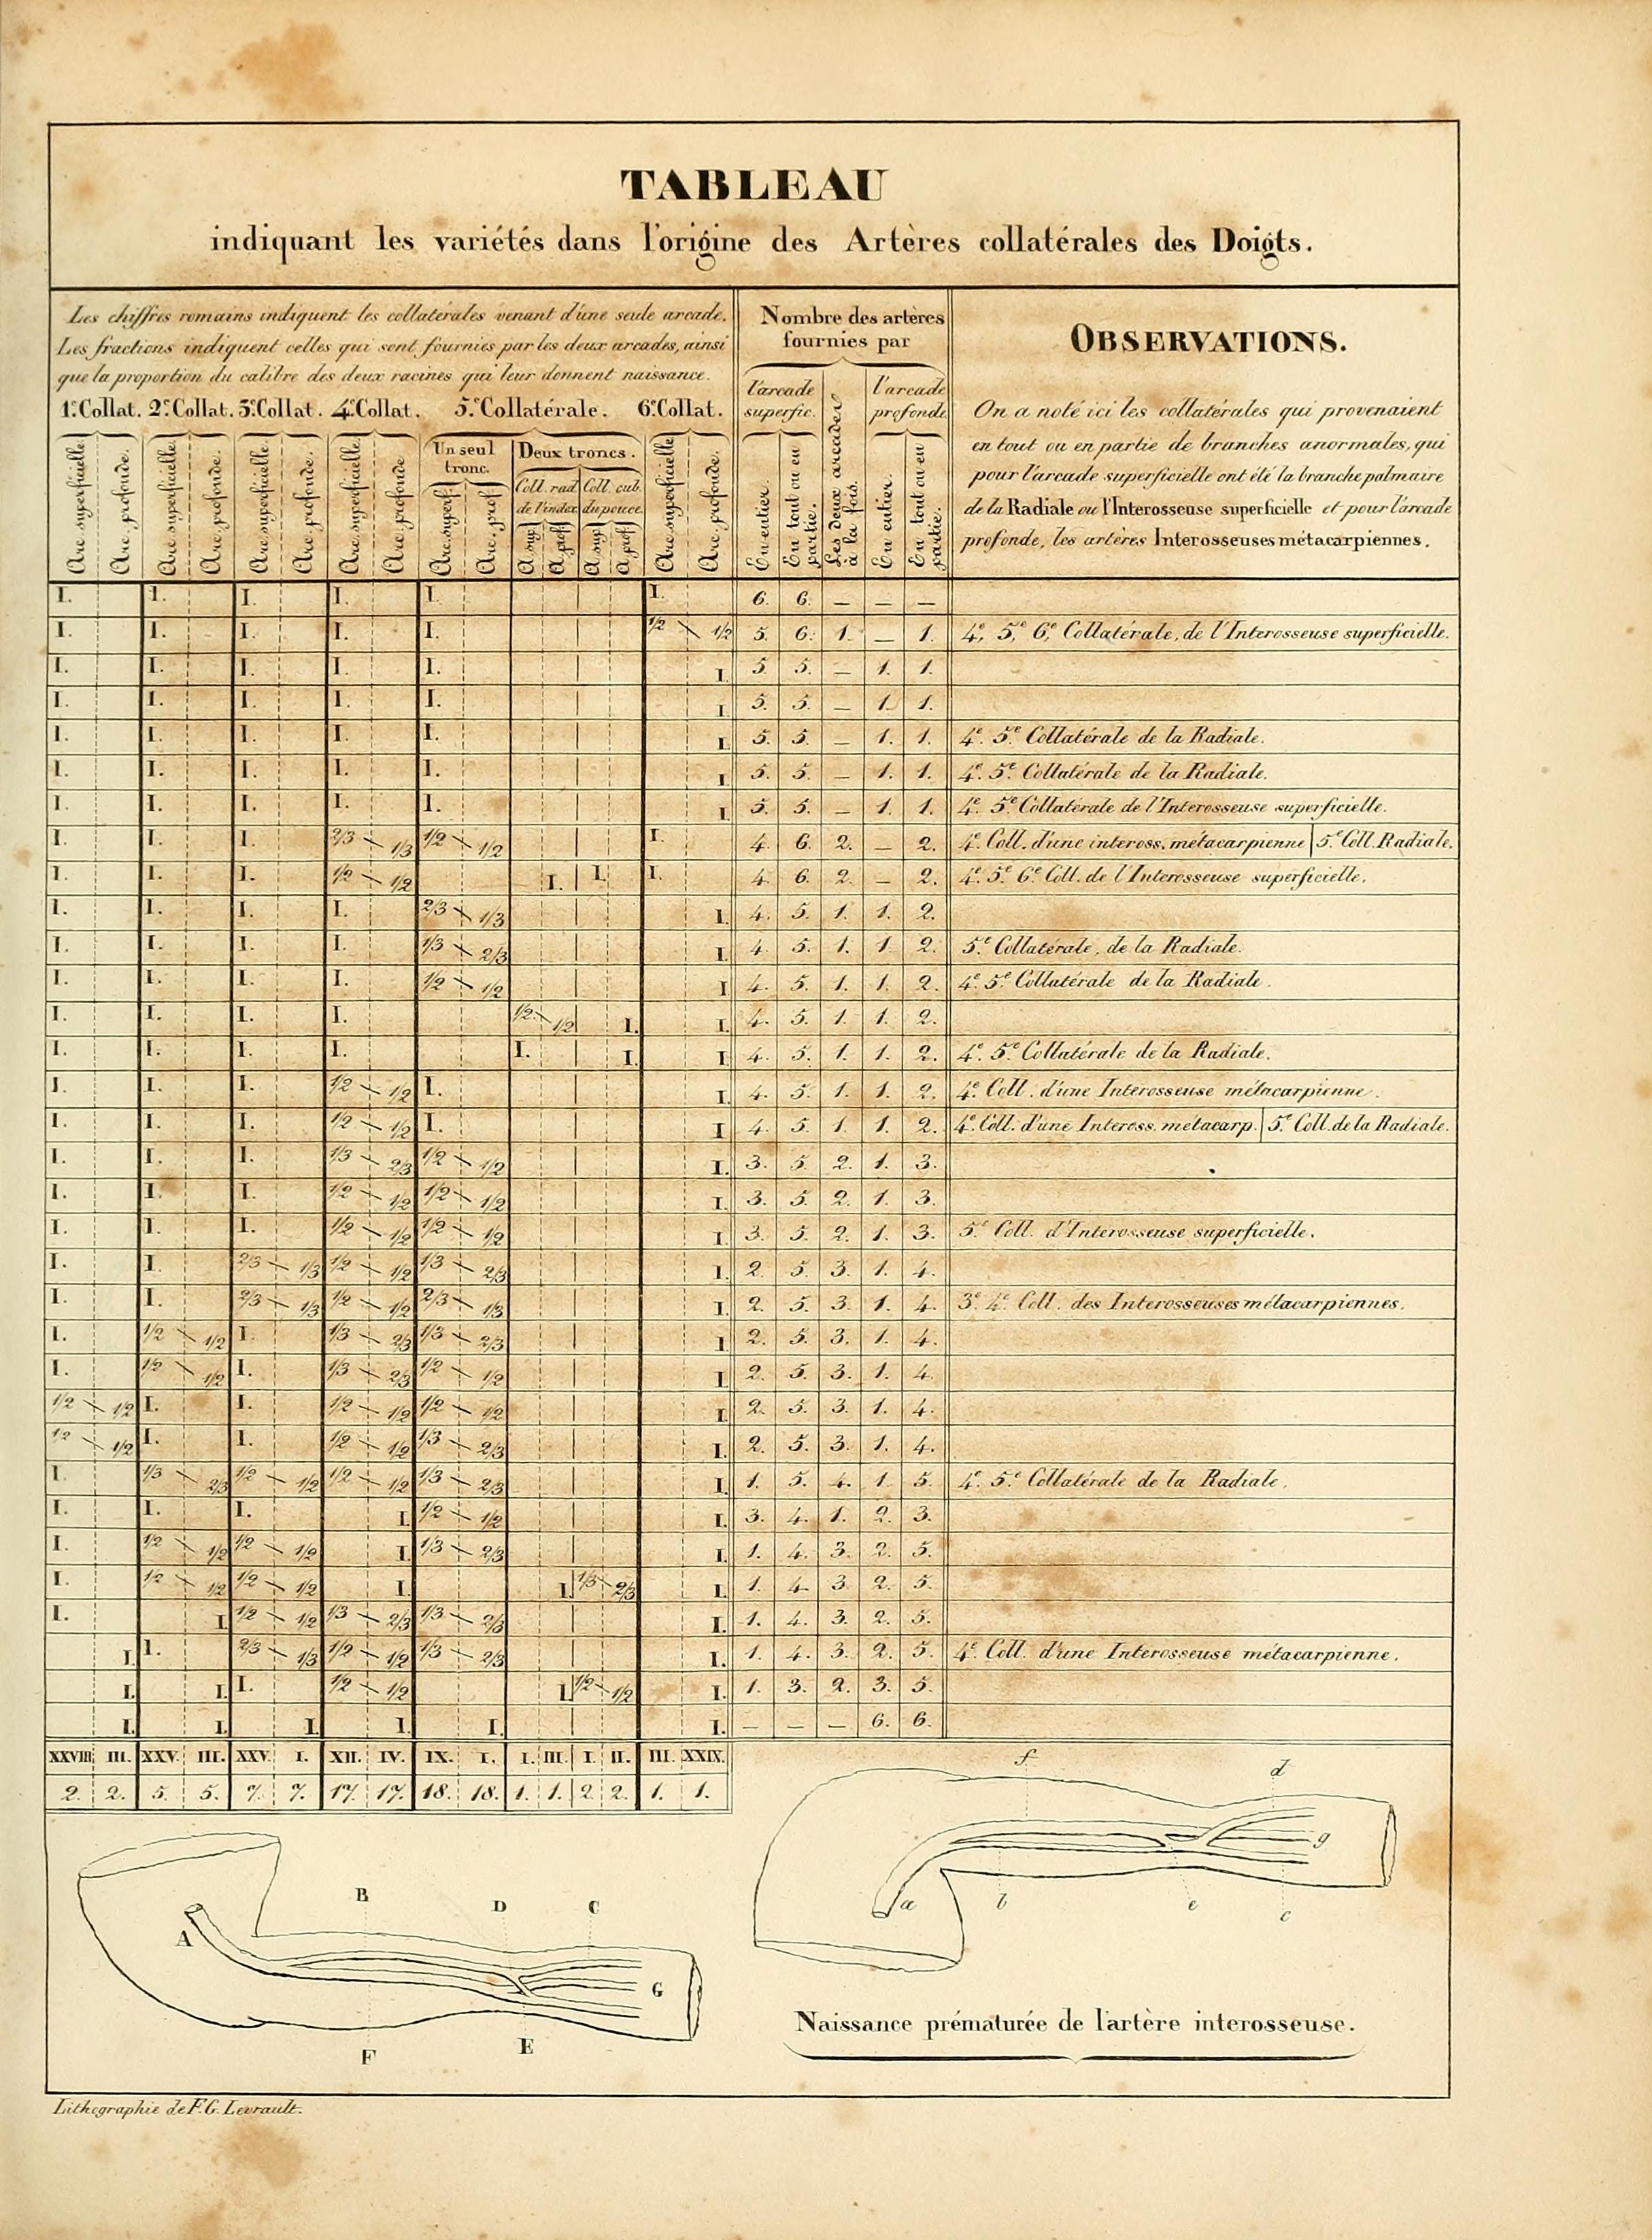 TABLEAU
indiquant les variétés dans l'origine des Artères collatérales des Doigts.
Les chiffres romains indiquent les collatérales venant d'une seule arcade.
Les fractions indiquent celles qui sont fournies par les deux arcades, ainsi
que la proportion du calibre des deux racines qui leur donnent naissance.
1.e Collat. 2.e Collat. 3.e Collat. 4.e Collat. 5.e Collatérale. 6.e Collat.
Un seul tronc. Deux troncs.
Coll. rad. de l'index Coll. cub. du pouce.
Arc superficielle. Arc. profonde. Arc superficielle. Arc. profonde. Arc superficielle. Arc. profonde. Arc superficielle. Arc. profonde Arc. superf. Arc. prof A. sup. A. prof. A. sup. A. prof. Arc superficielle Arc. profonde.
Nombre des artères
fournies par
l'arcade superfic. Les deux arcades à la fois. l'arcade profonde.
En entier. En tout ou en partie. En entier. En tout ou en partie.
OBSERVATIONS.
On a noté ici les collatérales qui provenaient
en tout ou en partie de branches anormales, qui
pour l'arcade superficielle ont été la branche palmaire
de la Radiale ou l'Interosseuse superficielle et pour l'arcade
profonde, les artères Interosseuses métacarpiennes.
I. I. I. I. I. I. 6. 6. — — —
I. I. I. I. I. 1/2 1/2 5. 6. 1. — 1. 4.e, 5.e, 6.e Collatérale, de l'Interosseuse superficielle.
I. I. I. I. I. I. 5. 5. — 1. 1.
I. I. I. I. I. I. 5. 5. — 1. 1.
I. I. I. I. I. I. 5. 5. — 1. 1. 4.e 5.e Collatérale de la Radiale.
I. I. I. I. I. I. 5. 5. — 1. 1. 4.e 5.e Collatérale de la Radiale.
I. I. I. I. I. I. 5. 5. — 1. 1. 4.e 5.e Collatérale de l'Interosseuse superficielle.
I. I. I. 2/3 1/3 1/2 1/2 I. 4. 6. 2. — 2. 4.e Coll. d'une inteross. métacarpienne | 5.e Coll. Radiale.
I. I. I. 1/2 1/2 I. I. I. 4. 6. 2. — 2. 4.e 5.e 6.e Coll. de l'Interosseuse superficielle.
I. I. I. I. 2/3 1/3 I. 4. 5. 1. 1. 2.
I. I. I. I. 1/3 2/3 I. 4. 5. 1. 1. 2. 5.e Collatérale, de la Radiale.
I. I. I. I. 1/2 1/2 I 4. 5. 1. 1. 2. 4.e 5.e Collatérale de la Radiale.
I. I. I. I. 1/2 1/2 I. I. 4. 5. 1. 1. 2.
I. I. I. I. I. I. I 4. 5. 1. 1. 2. 4.e 5.e Collatérale de la Radiale.
I. I. I. 1/2 1/2 I. I. 4. 5. 1. 1. 2. 4.e Coll. d'une Interosseuse métacarpienne.
I. I. I. 1/2 1/2 I. I 4. 5. 1. 1. 2. 4.e Coll. d'une Inteross. métacarp. | 5.e Coll. de la Radiale.
I. I. I. 1/3 2/3 1/2 1/2 I. 3. 5. 2. 1. 3.
I. I. I. 1/2 1/2 1/2 1/2 I. 3. 5. 2. 1. 3.
I. I. I. 1/2 1/2 1/2 1/2 I 3. 5. 2. 1. 3. 5.e Coll. d'Interosseuse superficielle.
I. I. 2/3 1/3 1/2 1/2 1/3 2/3 I. 2. 5. 3. 1. 4.
I. I. 2/3 1/3 1/2 1/2 2/3 1/3 I. 2. 5. 3. 1. 4. 3.e 4.e Coll. des Interosseuses métacarpiennes.
I. 1/2 1/2 I. 1/3 2/3 1/3 2/3 I 2. 5. 3. 1. 4.
I. 1/2 1/2 I. 1/3 2/3 1/2 1/2 I 2. 5. 3. 1. 4.
1/2 1/2 I. I. 1/2 1/2 1/2 1/2 I. 2. 5. 3. 1. 4.
1/2 1/2 I. I. 1/2 1/2 1/3 2/3 I. 2. 5. 3. 1. 4.
I. 1/3 2/3 1/2 1/2 1/2 1/2 1/3 2/3 I. 1. 5. 4. 1. 5. 4.e 5.e Collatérale de la Radiale.
I. I. I. I. 1/2 1/2 I. 3. 4. 1. 2. 3.
I. 1/2 1/2 1/2 1/2 I. 1/3 2/3 I. 1. 4. 3. 2. 5.
I. 1/2 1/2 1/2 1/2 I. I. 1/3 2/3 I. 1. 4. 3. 2. 5.
I. I. 1/2 1/2 1/3 2/3 1/3 2/3 I. 1. 4. 3. 2. 5.
I. I. 2/3 1/3 1/2 1/2 1/3 2/3 I. 1. 4. 3. 2. 5. 4.e Coll. d'une Interosseuse métacarpienne.
I. I. I. 1/2 1/2 I. 1/2 1/2 I. 1. 3. 2. 3. 5.
I. I. I. I. I. I. — — — 6. 6.
XXVIII. III. XXV. III. XXV. I. XII. IV. IX. I. I. III. I. II. III. XXIX.
2. 2. 5. 5. 7. 7. 17. 17. 18. 18. 1. 1. 2. 2. 1. 1.
f d
g
a b e c
B D C
A
G
F E
Naissance prématurée de l'artère interosseuse.
Lithographie de F. G. Levrault.